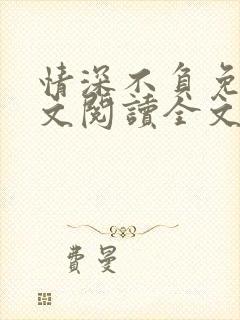 情深不負免
文閱讀全文
費曼